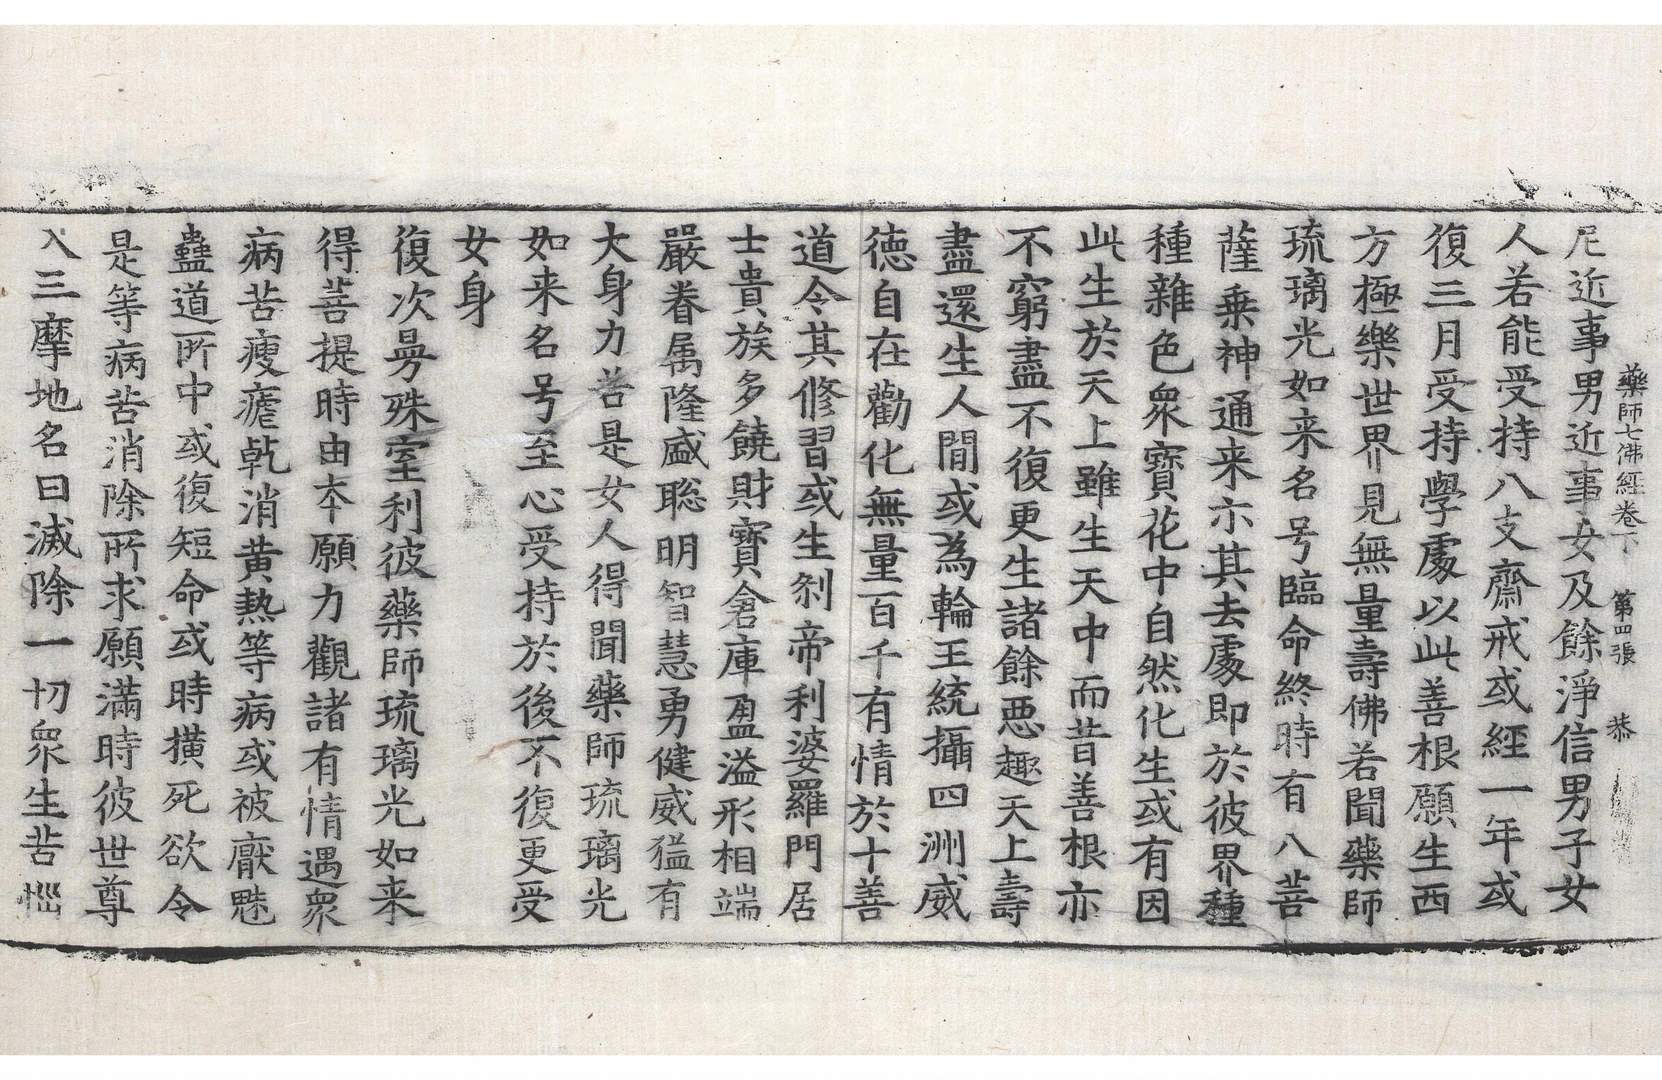 藥師七佛經卷下 第四張 恭
尼近事男近事女及餘淨信男子女
人若能受持八支齋戒或經一年或
復三月受持學處以此善根願生西
方極樂世界見無量壽佛若聞藥師
琉璃光如来名号臨命終時有八菩
薩乗神通来示其去處即於彼界種
種雜色衆寶花中自然化生或有因
此生於天上雖生天中而昔善根亦
不窮盡不復更生諸餘惡趣天上壽
盡還生人間或為輪王統攝四洲威
德自在勸化無量百千有情於十善
道令其修習或生刹帝利婆羅門居
士貴族多饒財寶倉庫盈溢形相端
嚴眷属隆盛聡明智慧勇健威猛有
大身力若是女人得聞藥師琉璃光
如来名号至心受持於後不復更受
女身
復次曼殊室利彼藥師琉璃光如来
得菩提時由本願力觀諸有情遇衆
病苦瘦瘧乹消黄熱等病或被厭魅
蠱道所中或復短命或時橫死欲令
是等病苦消除所求願滿時彼世尊
入三摩地名曰滅除一切衆生苦惱